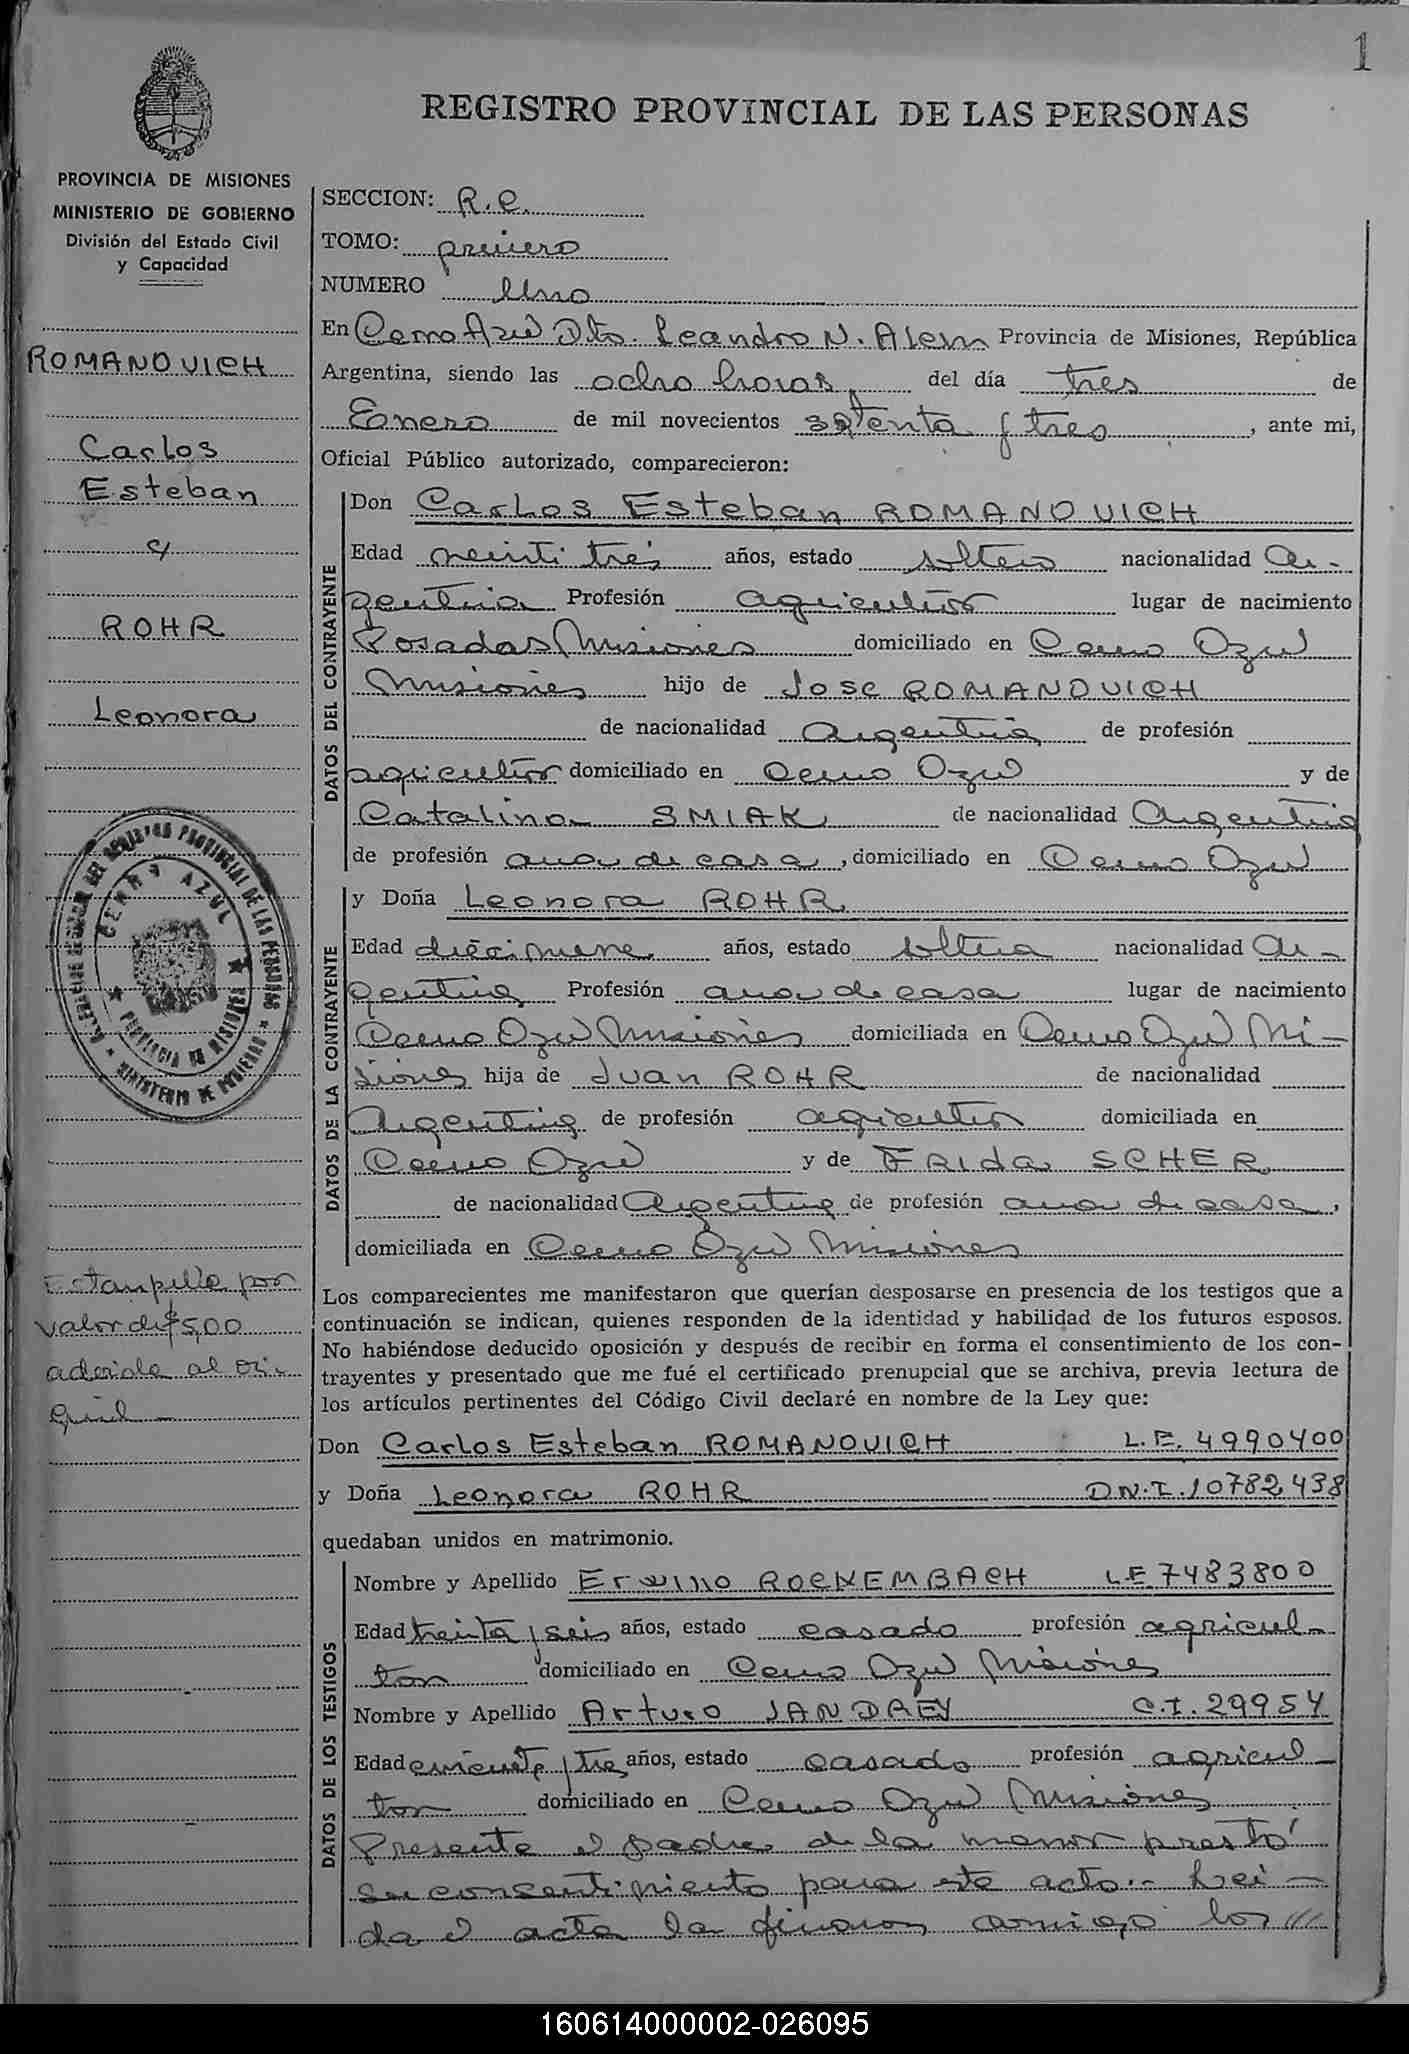 1
REGISTRO PROVINCIAL DE LAS PERSONAS
PROVINCIA DE MISIONES
MINISTERIO DE GOBIERNO
División del Estado Civil
y Capacidad
ROMANOVICH
Carlos
Esteban
c/
ROHR
Leonora
CERRO AZUL
PROVINCIA DE MISIONES
MINISTERIO DE GOBIERNO
REGISTRO PROVINCIAL DE LAS PERSONAS
Estampilla por
valor de $ 5,00
al ori-
SECCION: R.C.
TOMO: primero
NUMERO Uno
En Cerro Azul Dto. Leandro N. Alem Provincia de Misiones, República
Argentina, siendo las ocho horas, del día tres de
Enero de mil novecientos setenta y tres, ante mi,
Oficial Público autorizado, comparecieron:
DATOS DEL CONTRAYENTE
Don Carlos Esteban ROMANOVICH
Edad veinti tres años, estado soltero nacionalidad Ar-
gentina Profesión agricultor lugar de nacimiento
Posadas Misiones domiciliado en Cerro Azul
Misiones hijo de Jose ROMANOVICH
de nacionalidad Argentina de profesión
agricultor domiciliado en Cerro Azul y de
Catalina SMIAK de nacionalidad Argentina
de profesión ama de casa, domiciliado en Cerro Azul
DATOS DE LA CONTRAYENTE
y Doña Leonora ROHR
Edad diecinueve años, estado soltera nacionalidad Ar-
gentina Profesión ama de casa lugar de nacimiento
Cerro Azul Misiones domiciliada en Cerro Azul Mi-
siones hija de Juan ROHR de nacionalidad
Argentina de profesión agricultor domiciliada en
Cerro Azul y de FRIda SCHER
de nacionalidad Argentina de profesión ama de casa,
domiciliada en Cerro Azul Misiones
Los comparecientes me manifestaron que querían desposarse en presencia de los testigos que a
continuación se indican, quienes responden de la identidad y habilidad de los futuros esposos.
No habiéndose deducido oposición y después de recibir en forma el consentimiento de los con-
trayentes y presentado que me fué el certificado prenupcial que se archiva, previa lectura de
los artículos pertinentes del Código Civil declaré en nombre de la Ley que:
Don Carlos Esteban ROMANOVICH L.E. 4990400
y Doña Leonora ROHR D.N.I. 10782,438
quedaban unidos en matrimonio.
DATOS DE LOS TESTIGOS
Nombre y Apellido Erwino ROCKEMBACH LE 7483800
Edad treinta y seis años, estado casado profesión agricul-
tor domiciliado en Cerro Azul Misiones
Nombre y Apellido Arturo JANDREY C.I. 29954
Edad cincuenta y tres años, estado casado profesión agricul-
tor domiciliado en Cerro Azul Misiones
Presente el padre de la menor prestó
su consentimiento para este acto.- Lei-
da el acta la firman conmigo los ///
160614000002-026095